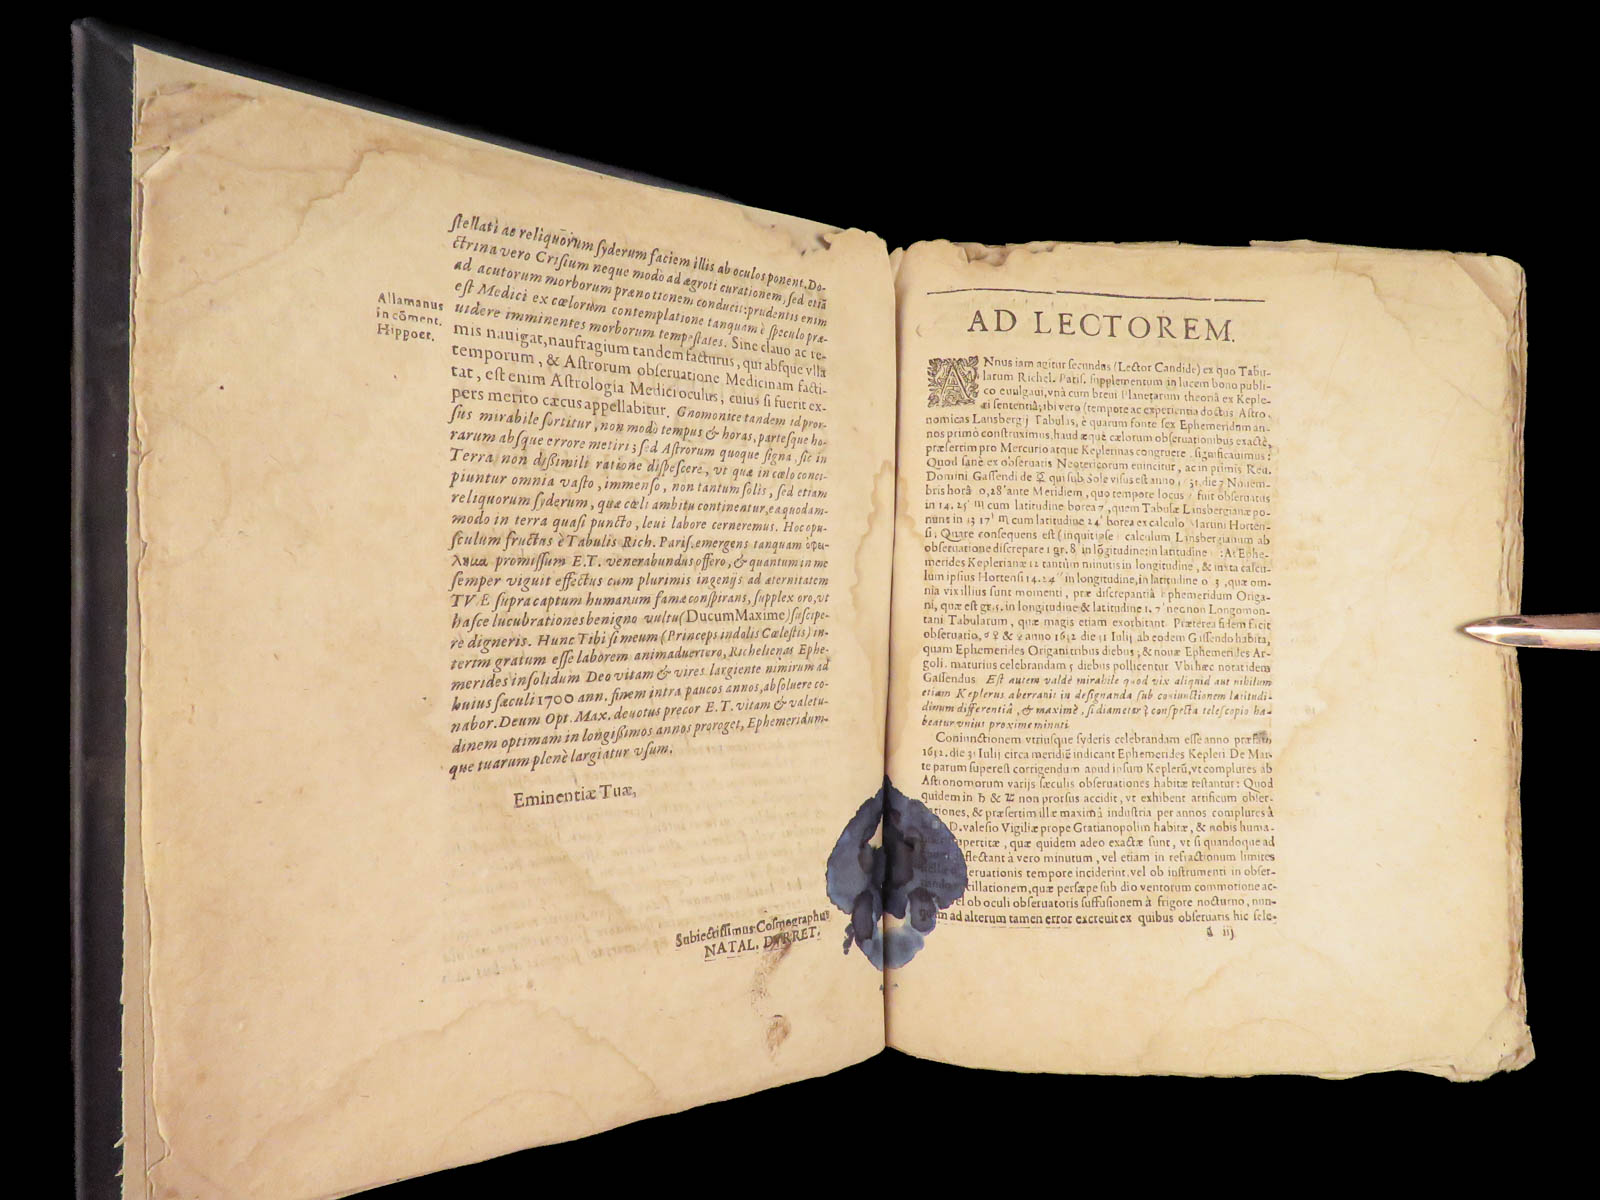 stellati ac reliquorum syderum faciem illis ab oculos ponent. Do-
ctrina vero Crisium neque modò ad ægroti curationem, sed etiã
ad acutorum morborum prænotionem conducit: prudentis enim
est Medici ex cœlorum contemplatione tanquam è speculo præ-
uidere imminentes morborum tempestates. Sine clauo ac re-
mis nauigat, naufragium tandem facturus, qui absque vlla
temporum, & Astrorum obseruatione Medicinam facti-
tat, est enim Astrologia Medici oculus, cuius si fuerit ex-
pers merito cæcus appellabitur. Gnomonice tandem id pror-
sus mirabile sortitur, non modò tempus & horas, partesque ho-
rarum absque errore metiri; sed Astrorum quoque signa, sic in
Terra non dißimili ratione dispescere, vt quæ in cœlo conci-
piuntur omnia vasto, immenso, non tantum solis, sed etiam
reliquorum syderum, quæ cœli ambitu continentur, ea quodam-
modo in terra quasi puncto, leui labore cerneremus. Hoc opu-
sculum fructus è Tabulis Rich. Paris. emergens tanquam
promissum E.T. venerabundus offero, & quantum in me
semper viguit effectus cum plurimis ingenijs ad æternitatem
TVÆ supra captum humanum famæ conspirans, supplex oro, vt
hasce lucubrationes benigno vultu (Ducum Maxime) suscipe-
re digneris. Hunc Tibi si meum (Princeps indolis Cœlestis) in-
terim gratum esse laborem animaduertero, Richelienas Ephe-
merides in solidum Deo vitam & vires largiente nimirum ad
huius sæculi 1700 ann. finem intra paucos annos, absoluere co-
nabor. Deum Opt. Max. deuotus precor E.T. vitam & valetu-
dinem optimam in longißimos annos proroget, Ephemeridum-
que tuarum plenè largiatur vsum.
Allamanus
in cõment.
Hippocr.
Eminentiæ Tuæ,
Subiectissimus Cosmographus
NATAL. DVRRET.
AD LECTOREM.
ANnus iam agitur secundus (Lector Candide) ex quo Tabu-
larum Richel. Paris. supplementum in lucem bono publi-
co euulgaui, vnà cum breui Planetarum theoria ex Keple-
ri sententia; ibi vero (tempore ac experientia doctus) Astro-
nomicas Lansbergij Tabulas, è quarum fonte sex Ephemeridum an-
nos primò construximus, haud æquè cælorum obseruationibus exactè,
præsertim pro Mercurio atque Keplerinas congruere significauimus:
Quod sanè ex obseruatis Neotericorum euincitur, ac in primis Reu.
Domini Gassendi de ☿ qui sub Sole visus est anno 1631. die 7 Nouem-
bris horâ 0,28' ante Meridiem, quo tempore locus ☿ fuit obseruatus
in 14. 25' ♏ cum latitudine borea 7, quem Tabulæ Linsbergianæ po-
nunt in 13 17' ♏ cum latitudine 24' borea ex calculo Martini Horten-
si: Quare consequens est (inquit ipse) calculum Linsbergianum ab
obseruatione discrepare 1 gr. 8 in lõgitudine; in latitudine : At Ephe-
merides Keplerianæ 12 tantùm minutis in longitudine, & iuxta calcu-
lum ipsius Hortensi 14. 24" in longitudine, in latitudine 0 3, quæ om-
nia vix illius sunt momenti, præ discrepantiâ Ephemeridum Origa-
ni, quæ est gr. 5. in longitudine & latitudine 1. 7' necnon Longomon-
tani Tabularum, quæ magis etiam exorbitant. Præterea fidem facit
obseruatio, ☌ ☿ & ♀ anno 1632 die 11 Iulij ab eodem Gassendo habita,
quam Ephemerides Origani tribus diebus; & nouæ Ephemerides Ar-
goli. maturius celebrandam 5 diebus pollicentur. Vbi hæc notat idem
Gassendus. Est autem valdè mirabile quod vix aliquid aut nihilum
etiam Keplerus aberrarit in designanda sub coniunctionem latitudi-
dinum differentiâ, & maximè, si diameter ☿ conspecta telescopio ha-
beatur vnius proximè minuti.
Coniunctionem vtriusque syderis celebrandam esse anno præfato
1632. die 31 Iulij circa meridiẽ indicant Ephemerides Kepleri. De Mar-
te parum superest corrigendum apud ipsum Keplerũ, vt complures ab
Astronomorum varijs sæculis obseruationes habitæ testantur: Quod
quidem in ♄ & ♃ non prorsus accidit, vt exhibent artificum obser-
uationes, & præsertim illæ maximâ industria per annos complures à
D. valesio Vigiliæ prope Gratianopolim habitæ, & nobis huma-
impertitæ, quæ quidem adeo exactæ sunt, vt si quandoque ad
flectant à vero minutum, vel etiam in refractionum limites
eruationis tempore inciderint. vel ob instrumenti in obser-
cillationem, quæ persæpe sub dio ventorum commotione ac-
vel ob oculi obseruatoris suffusionem à frigore nocturno, nun-
quam ad alterum tamen error excreuit ex quibus obseruatis hic sele-
a iij